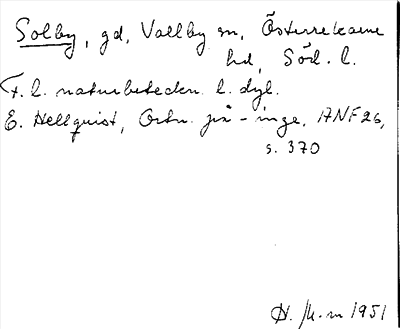 Solby, gd, Vallby sn, Österrekarne
hd, Söd. l.
F. l. naturbeteckn. l. dyl.
E. Hellquist, Ortn. på -inge, ANF 26,
s. 370
H. 1951